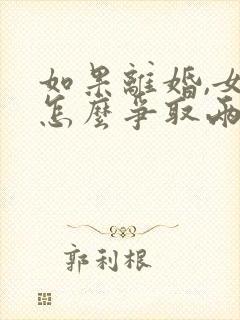 如果離婚,女
怎麼爭取兩
郭利根